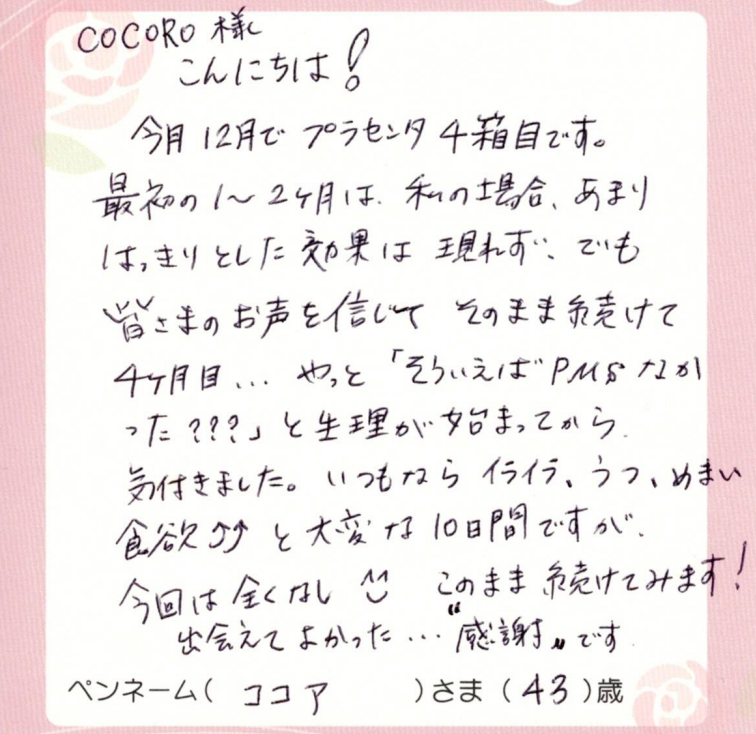 COCORO 様
こんにちは!
今月12月で プラセンタ 4箱目です。
最初の1〜2ヶ月は、私の場合、あまり
はっきりとした効果は現れず、でも
皆さまのお声を信じて そのまま続けて
4ヶ月目... やっと「そういえばPMSなか
った???」と生理が始まってから
気付きました。いつもなら イライラ、うつ、めまい
食欲⇈ と大変な10日間ですが、
今回は全くなし ^^ このまま続けてみます!
出会えてよかった... "感謝" です
ペンネーム( ココア )さま (43)歳